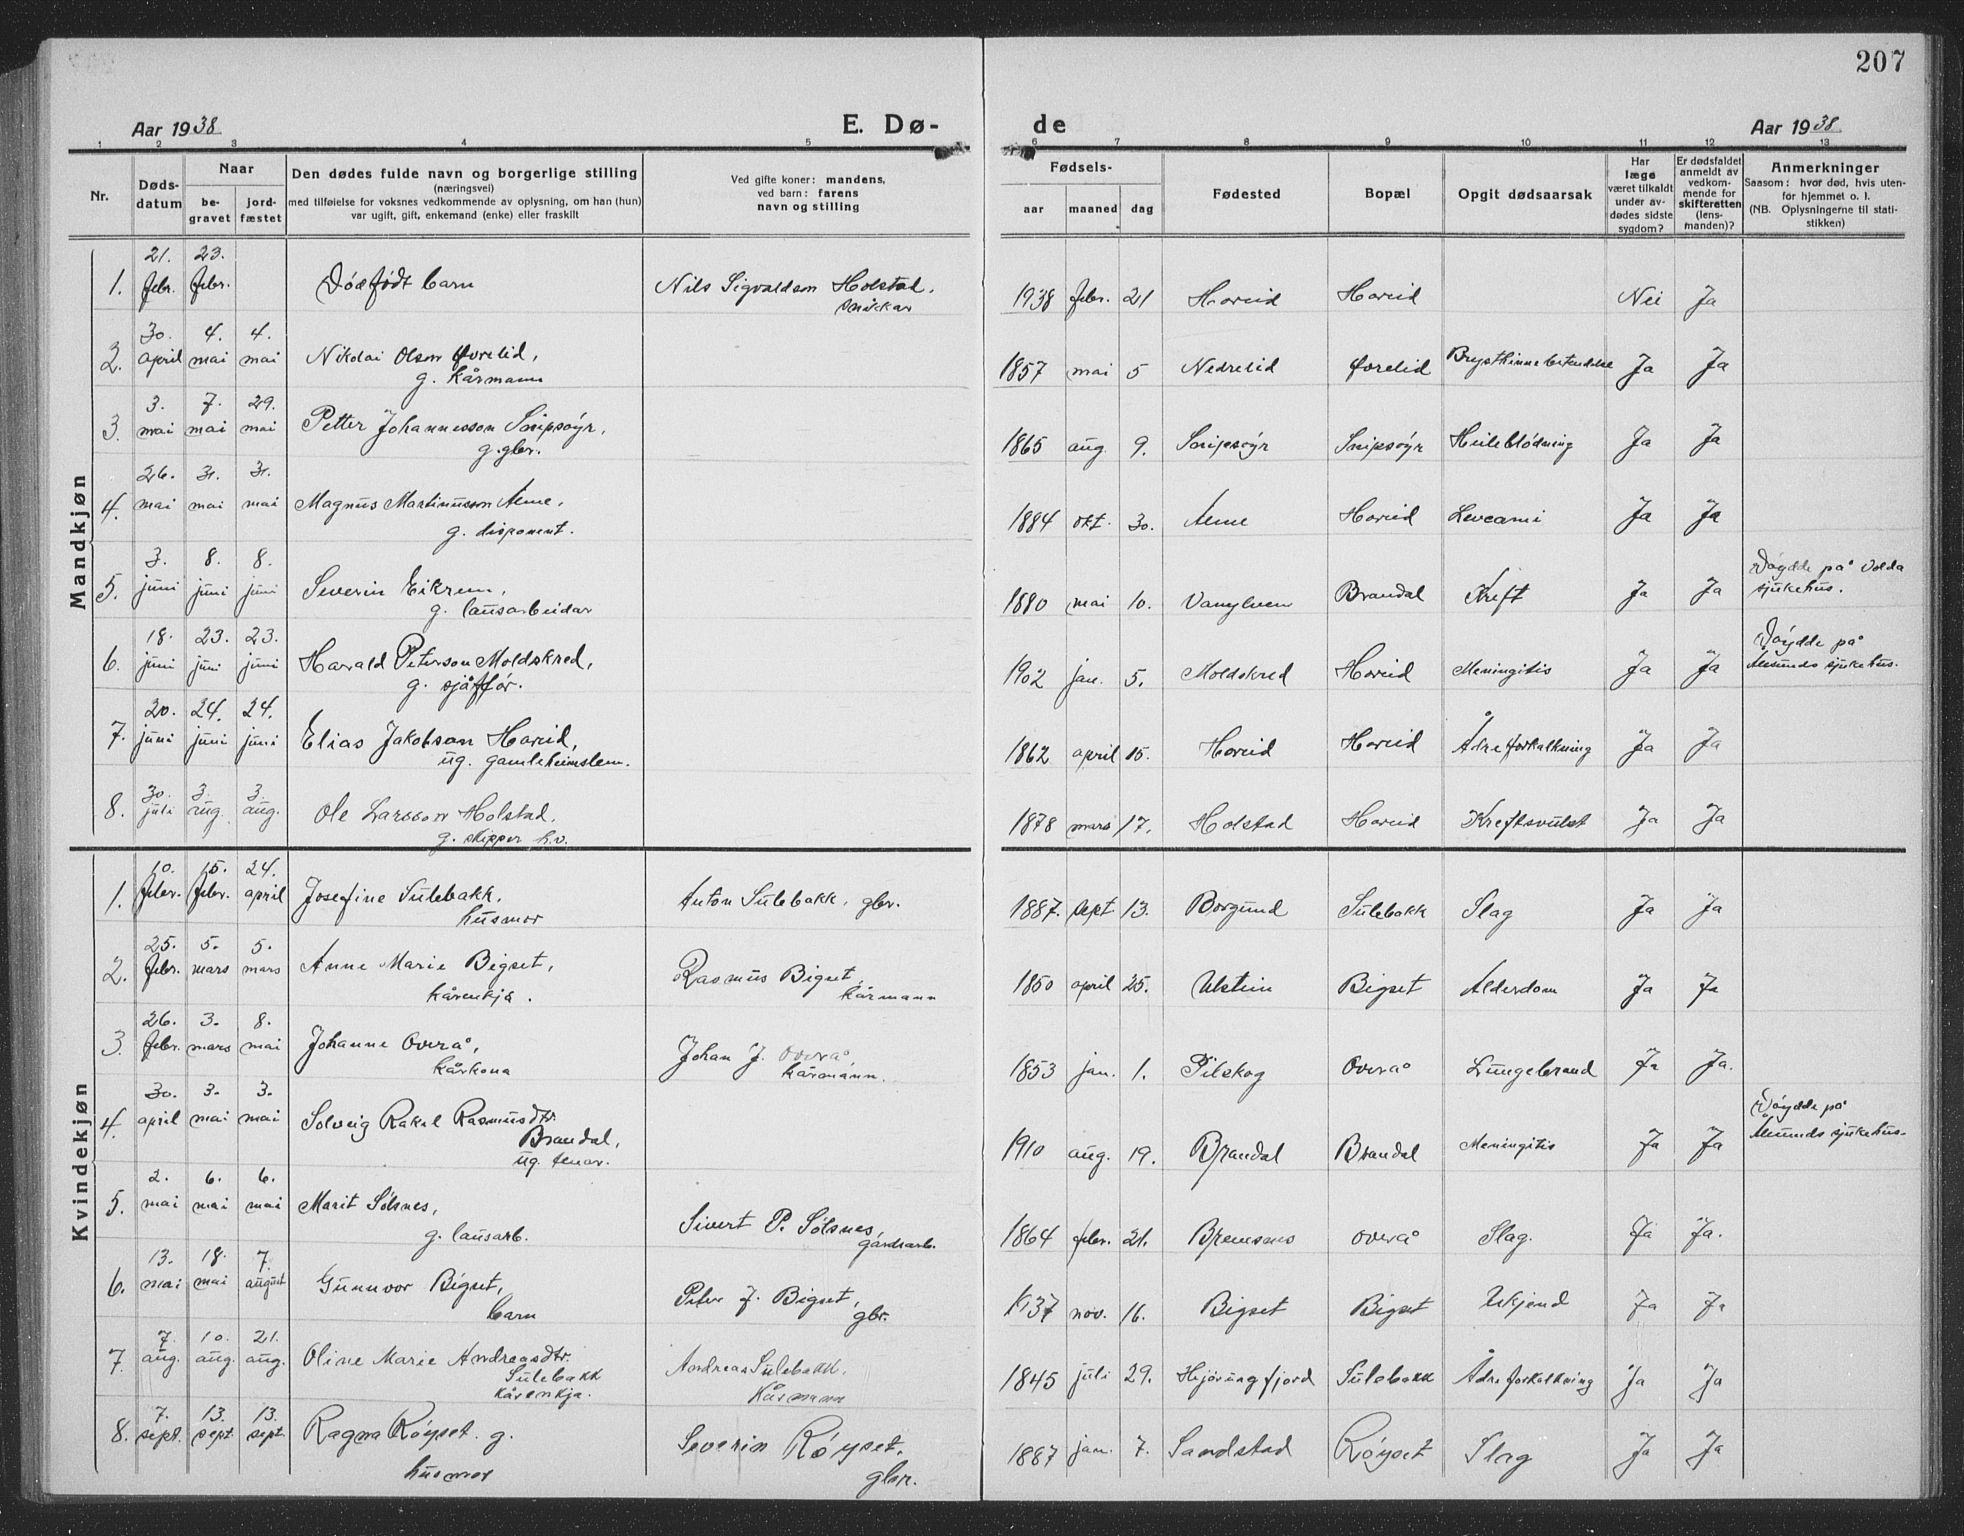 207
Aar 1938 E. Dø- de Aar 1938
1 2 3 4 5 6 7 8 9 10 11 12 13
Nr. Døds-datum Naar be-gravet jord-fæstet Den dødes fulde navn og borgerlige stilling (næringsvei) med tilføielse for voksnes vedkommende av oplysning, om han (hun) var ugift, gift, enkemand (enke) eller fraskilt Ved gifte koner: mandens, ved barn: farens navn og stilling Fødsels- aar maaned dag Fødested Bopæl Opgit dødsaarsak Har læge været tilkaldt under av-dødes sidste sygdom? Er dødsfaldet anmeldt av vedkom-mende for skifteretten (lens-manden)? Anmerkninger Saasom: hvor død, hvis uten-for hjemmet o. l. (NB. Oplysningerne til stati-stikken)
Mandkjøn
1. 21. febr. 23. febr. Dødfødt barn Nils Sigvaldson Holstad, snikkar 1938 febr. 21 Hareid Hareid Nei Ja
2. 30. april 4. mai 4. mai Nikolai Olson Øvrelid, g. kårmann 1857 mai 5 Nedrelid Øvrelid Brysthinnebetendelse Ja Ja
3. 3. mai 7. mai 29. mai Petter Johannesson Snipsøyr, g. gbr. 1865 aug. 9. Snipsøyr Snipsøyr Heileblødning Ja Ja
4. 26. mai 31. mai 31. mai Magnus Martinusson Alme, g. disponent. 1884 okt. 30. Alme Hareid Levcami Ja Ja
5. 3. juni 8. juni 8. juni Severin Eikrem, g. lausarbeidar 1880 mai 10. Vanylven Brandal Kreft Ja Ja Døydde på Volda sjukehus.
6. 18. juni 23. juni 23. juni Harald Peterson Moldskred, g. sjåffør. 1902 jan. 5. Moldskred Hareid Meningitis Ja Ja Døydde på Ålesunds sjukehus.
7. 20. juni 24. juni 24. juni Elias Jakobson Hareid, ug. gamleheimslem. 1862 april 15. Hareid Hareid Ådreforkalkning Ja Ja
8. 30. juli 3. aug. 3. aug. Ole Larsson Holstad, g. skipper h.v. 1878 mars 17. Holstad Hareid Kreftsvulst Ja Ja
Kvindekjøn
1. 10. febr. 15. febr. 24. april Josefine Sulebakk, husmor Anton Sulebakk, gbr. 1887. sept. 13. Borgund Sulebakk Slag Ja Ja
2. 25. febr. 5. mars 5. mars Anne Marie Bigset, kårenkja. Rasmus Bigset, kårmann 1850 april 25. Ulstein Bigset Alderdom Ja Ja
3. 26. febr. 3. mars 8. mai Johanne Overå, kårkona Johan J. Overå, kårmann. 1853 jan. 1. Pilskog Overå Lungebrand Ja Ja.
4. 30. april 3. mai 3. mai Solveig Rakel Rasmusdtr. Brandal, ug. tenar. 1910 aug. 19. Brandal Brandal Meningitis Ja Ja Døydde på Ålesunds sjukehus.
5. 2. mai 6. mai 6. mai Marit Sølsnes, g. lausarb. Sivert P. Sølsnes, gardsarb. 1864 febr. 21. Bremsnes Overå Slag. Ja Ja.
6. 13. mai 18. mai 7. august Gunnvor Bigset, barn Peter J. Bigset, gbr. 1937 nov. 16. Bigset Bigset Ukjend Ja Ja
7. 7. aug. 10. aug. 21. aug. Oline Marie Andreasdtr. Sulebakk kårenkja. Andreas Sulebakk, Kårmann 1845 juli 29. Hjørungfjord Sulebakk Ådreforkalkning Ja Ja
8. 7. sept. 13. sept. 13. sept. Ragna Røyset. g. husmor Severin Røyset, gbr. 1887 jan. 7. Sandstad Røyset Slag Ja Ja